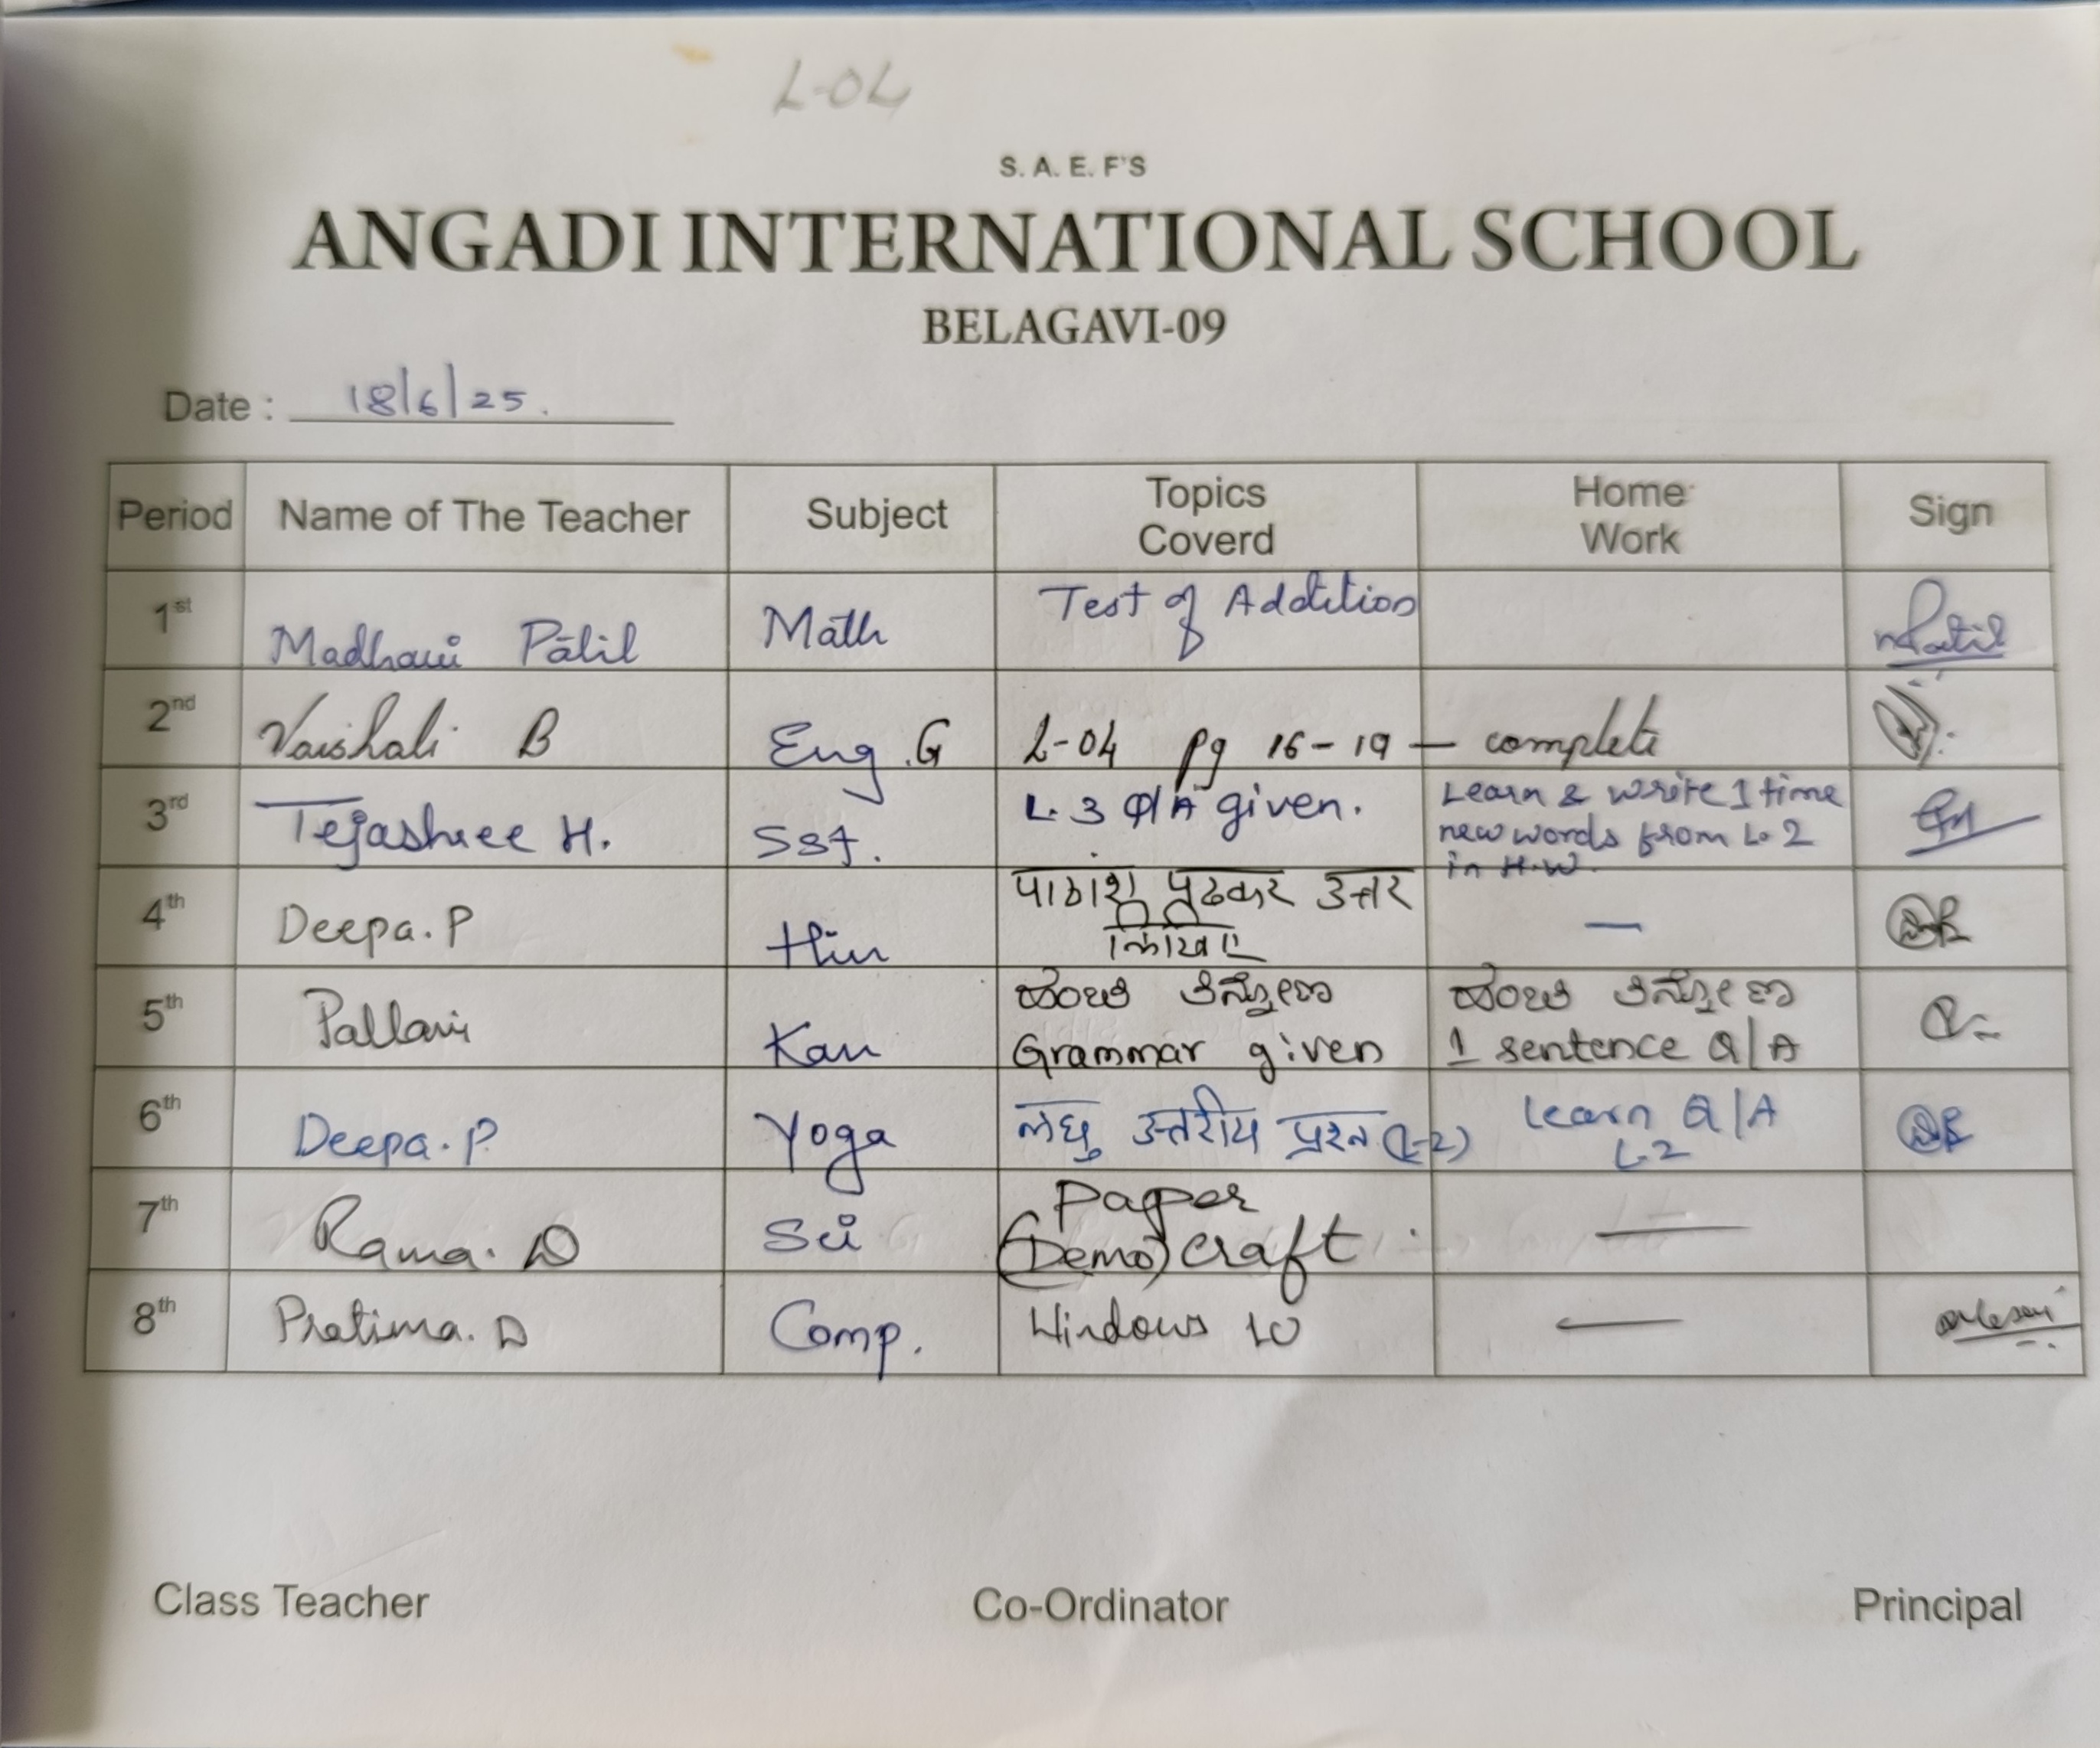 L-04
S. A. E. F'S
ANGADI INTERNATIONAL SCHOOL
BELAGAVI-09
Date : 18/6/25.
Period Name of The Teacher Subject Topics Coverd Home Work Sign
1st Madhavi Patil Math Test of Addition MPatil
2nd Vaishali B Eng.G L-04 pg 16-19 — complete
3rd Tejashree H. Sst. L.3 Q/A given. Learn & write 1 time
new words from L.2
in H.W.
4th Deepa.P Hin पाठांश पढकर उत्तर —
लिखिए
5th Pallavi Kan ಹಂಚಿ ತಿನ್ನೋಣ ಹಂಚಿ ತಿನ್ನೋಣ
Grammar given 1 sentence Q/A
6th Deepa.P. Yoga लघु उत्तरीय प्रश्न (L-2) Learn Q/A
L.2
7th Rama.D Sci Paper —
(Demo) craft
8th Pratima.D Comp. Windows 10 —
Class Teacher Co-Ordinator Principal